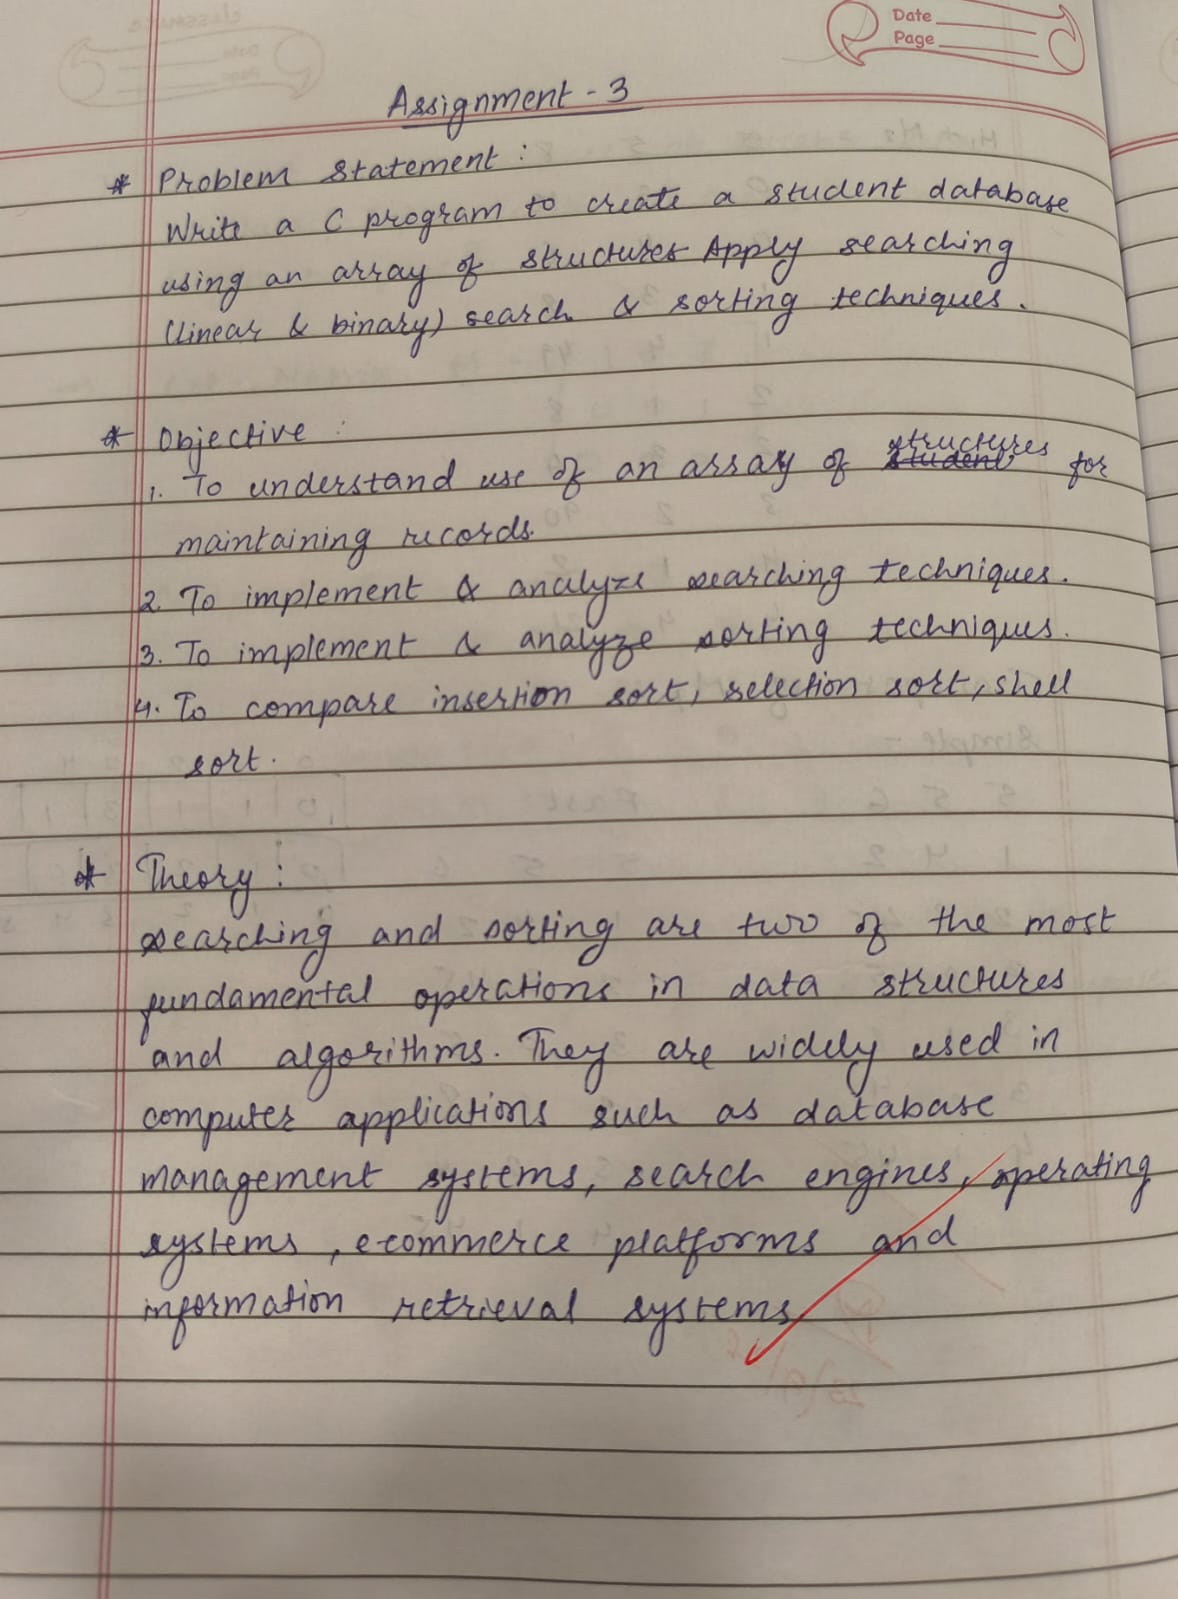 Date
Page
Assignment - 3
* Problem Statement :
Write a C program to create a student database
using an array of structures Apply searching
(linear & binary) search & sorting techniques.
* Objective :
1. To understand use of an array of structures for
maintaining records.
2. To implement & analyze searching techniques.
3. To implement & analyze sorting techniques.
4. To compare insertion sort, selection sort, shell
sort.
* Theory :
searching and sorting are two of the most
fundamental operations in data structures
and algorithms. They are widely used in
computer applications such as database
management systems, search engines, operating
systems, e-commerce platforms and
information retrieval systems